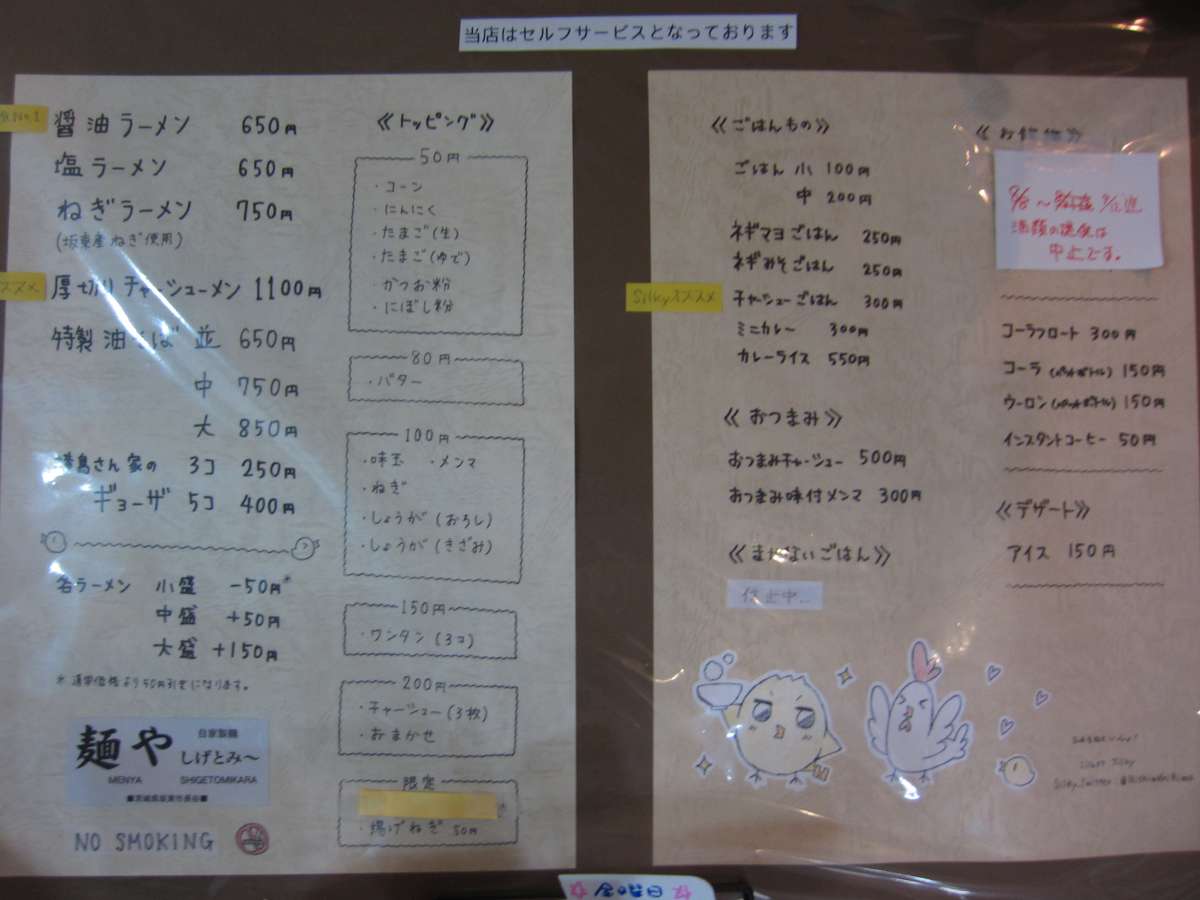 当店はセルフサービスとなっております
醤油ラーメン 650円
塩ラーメン 650円
ねぎラーメン 750円
(坂東産ねぎ使用)
ススメ 厚切りチャーシューメン 1100円
特製油そば 並 650円
中 750円
大 850円
さん家の 3コ 250円
ギョーザ 5コ 400円
各ラーメン 小盛 -50円*
中盛 +50円
大盛 +150円
*通常価格より50円引きになります。
麺や 自家製麺 しげとみ〜
MENYA SHIGETOMIKARA
NO SMOKING
≪トッピング≫
50円
・コーン
・にんにく
・たまご(生)
・たまご(ゆで)
・かつお粉
・にぼし粉
80円
・バター
100円
・味玉 ・メンマ
・ねぎ
・しょうが(おろし)
・しょうが(きざみ)
150円
・ワンタン(3コ)
200円
・チャーシュー(3枚)
・おまかせ
限定
・揚げねぎ 50円
≪ごはんもの≫
ごはん 小 100円
中 200円
ネギマヨごはん 250円
ネギみそごはん 250円
Silkyススメ チャーシューごはん 300円
ミニカレー 300円
カレーライス 550円
≪おつまみ≫
おつまみチャーシュー 500円
おつまみ味付メンマ 300円
≪まかないごはん≫
休止中…
酒類の提供は
中止です。
コーラフロート 300円
コーラ (ペットボトル) 150円
ウーロン (ペットボトル) 150円
インスタントコーヒー 50円
≪デザート≫
アイス 150円
金曜日